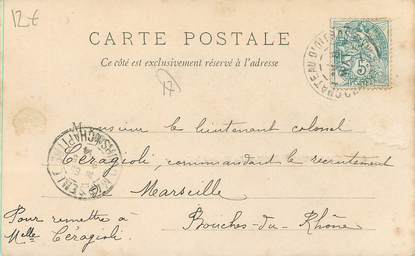 12€
CARTE POSTALE
Ce côté est exclusivement réservé à l'adresse
17
5
Monsieur le lieutenant colonel
Céragioli, commandant le recrutement
de Marseille
Bouches-du-Rhône
Pour remettre à
Melle Céragioli.